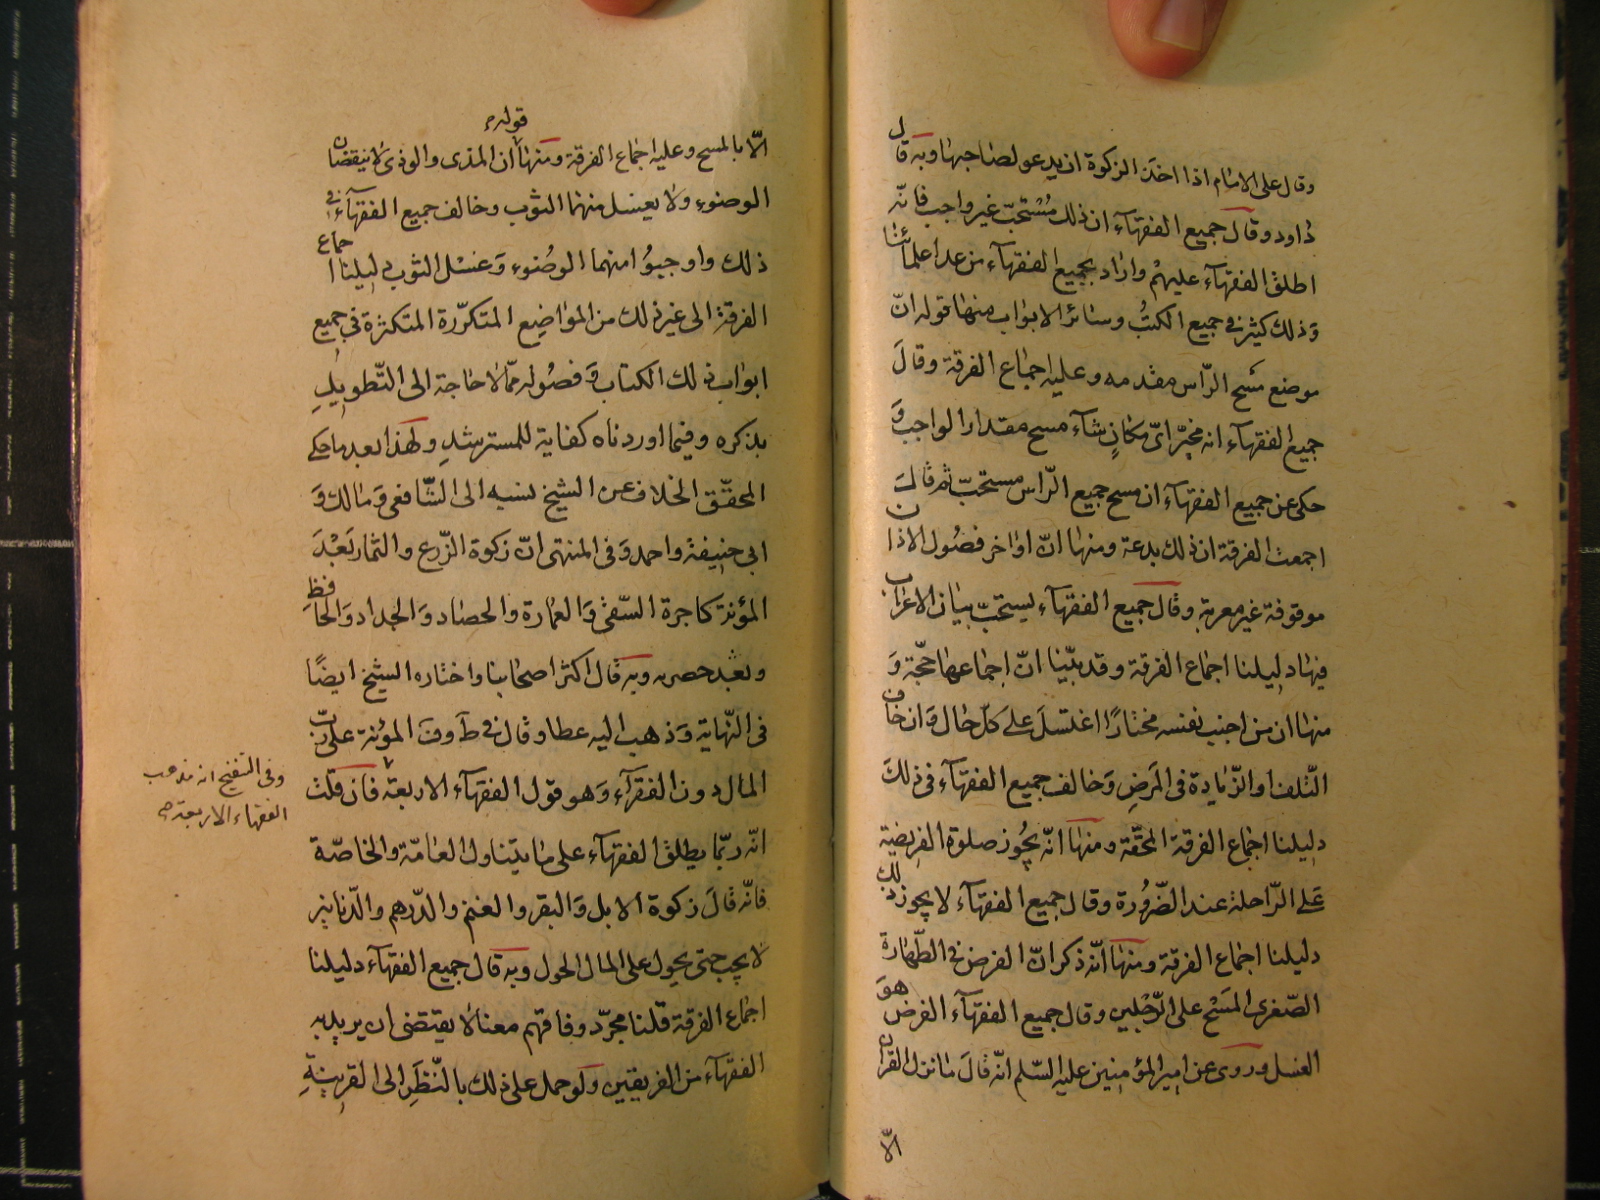 وقال على الامام اذا اخذ الزكوة ان يدعو لصاحبها وبه قال
داود وقال جميع الفقهآء ان ذلك مُسْتحبّ غير واجب فانّه
اطلق الفقهآء عليهم واراد بجميع الفقهآء من عدا علمائنا
وَذلك كثير في جميع الكتُب وسائر الابواب منها قوله انّ
موضع مَسْح الرّاس مقدمه وعليه اجماع الفرقة وقالَ
جميع الفقهآء انه مخيّر اىّ مكانٍ شآء مسح مقدار الواجب وَ
حكى عن جميع الفقهآء ان مسح جميع الرّاس مستحبّ ثم قالَ
اجمعت الفرقة ان ذلك بدعة ومنها انّ اواخر فصُول الاذان
موقوفة غير معربة وقال جميع الفقهآء يستحبّ بيان الاعراب
فيها دليلنا اجماع الفرقة وقد بيّنا انّ اجماعها حجّة وَ
منها ان من اجنب نفسه مختارًا اغتسلَ على كلّ حال وَان خاف
التّلف او الزّيادة فى المَرضِ وَخالف جميع الفقهآء فى ذلكَ
دليلنا اجماع الفرقة المحقّة ومنها انّه يجُوز صلوة الفريضة
عَلى الرّاحلة عند الضّرُورة وقال جميع الفقهآء لا يجوز ذلك
دليلنا اجماع الفرقة ومنها انّه ذكر انّ الفرض في الطّهارة
الصّغرى المَسْح على الرّجْلين وقال جميع الفقهآء الفرض هوَ
الغسل وروى عن امير المؤمنين عليه السّلم انّه قالَ ما نزل القران
الّا
الّا بالمسح وعليه اجماع الفرقة ومنها قوله ان المذى والوذى لا ينقضان
الوضوء ولا يغسل منهما الثوب وخالف جميع الفقهآء في
ذلك واوجبوُا منهما الوضُوء وَغسْل الثوب دليلنا اجماع
الفرقة الى غير ذلك من المواضِع المتكرّرة المتكثرة في جميع
ابواب ذلك الكتاب وَفصُوله ممّا لا حاجة الى التّطويلِ
بذكره وفيما اوردناه كفاية للمسترشدِ ولهذا بعد ما حكى
المحقّق الخلاف عن الشيخ نسبه الى الشّافعى وَمالك وَ
ابى حنيفة واحمد وَفى المنتهى انّ زكوة الزّرع والثمار بَعْدَ
المؤنة كاجرة السّقى وَالعمارة والحصاد وَالجداد وَالحافظِ
وبعْد حصره وبه قال اكثر اصحابنا واختاره الشيخ ايضًا
فى النّهاية وَذهب اليه عطا وقال في طَ وفَ المؤنة على ربّ
المال دون الفقرآء وَهو قول الفقهآء الاربعة فان قلت
انّه ربّما يطلق الفقهآء على ما يتناول العامّة والخاصّة
فانّه قالَ زكوة الابل وَالبقر والغنم والدّرهم والدّنانير
لا يجب حتى يحول على المال الحول وبه قال جميع الفقهآء دليلنا
اجماع الفرقة قلنا مجرّد وفاقهم معنا لا يقتضى ان يريد به
الفقهآء من الفريقين ولو حمل على ذلك بالنّظر الى القرينةِ
وفى التنقيح انه مذهب
الفقهاء الاربعة